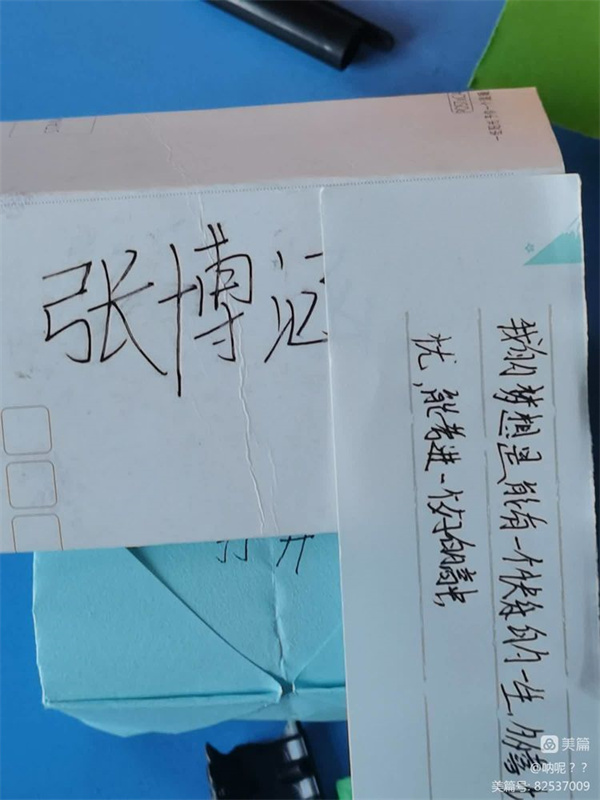 张博
我的梦想是能有一个快乐的一生,
忧,能考进一个好的高中,
打开
美篇
@呐呢??
美篇号: 82537009